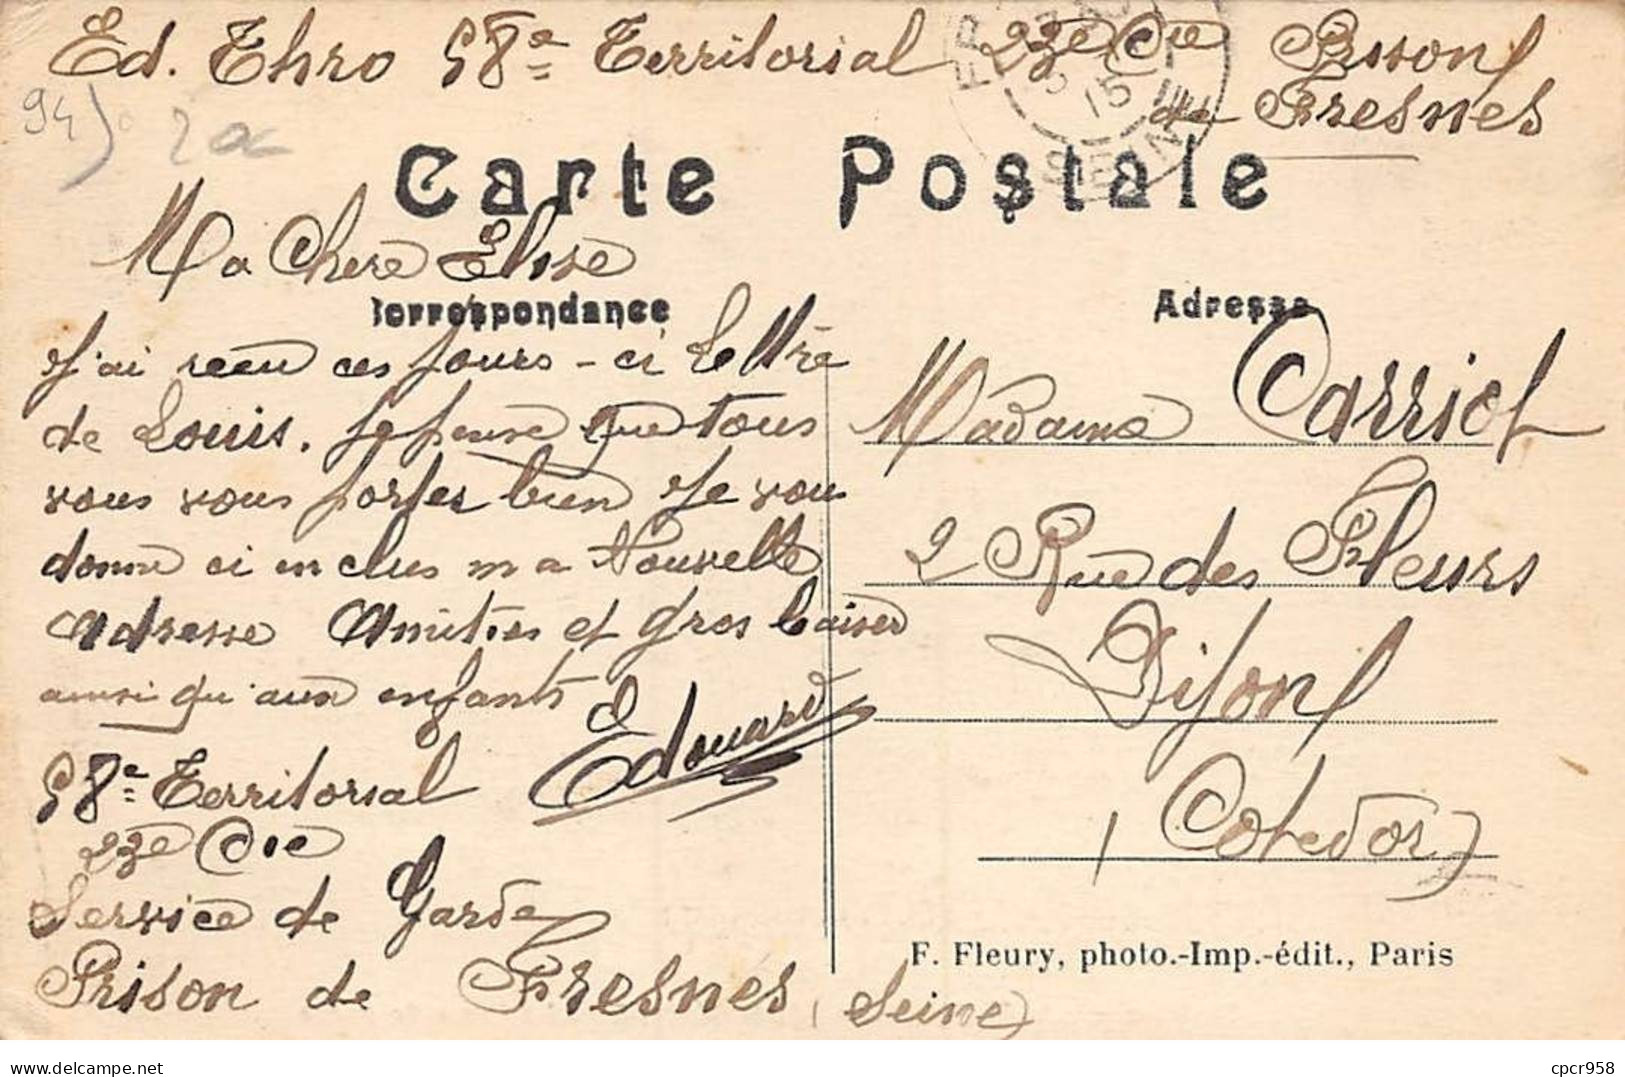 Ed. Thro 58e Territorial 23e Cie Prison
de Fresnes
94
Carte Postale
Ma Chere Elise
Correspondance
J'ai recu ces jours-ci Lettre
de Louis. Je pense que tous
vous vous porter bien Je vous
donne ci enclus ma Nouvelle
Adresse Amities et gros baiser
ainsi qu'aux enfants
Edouard
58e Territorial
23e Cie
Service de Garde
Prison de Fresnes (Seine)
Adresse
Madame Carriot
2 Rue des Fleurs
Dijon
(Cote d'or)
F. Fleury, photo.-Imp.-édit., Paris
15
SEINE
cpcr958